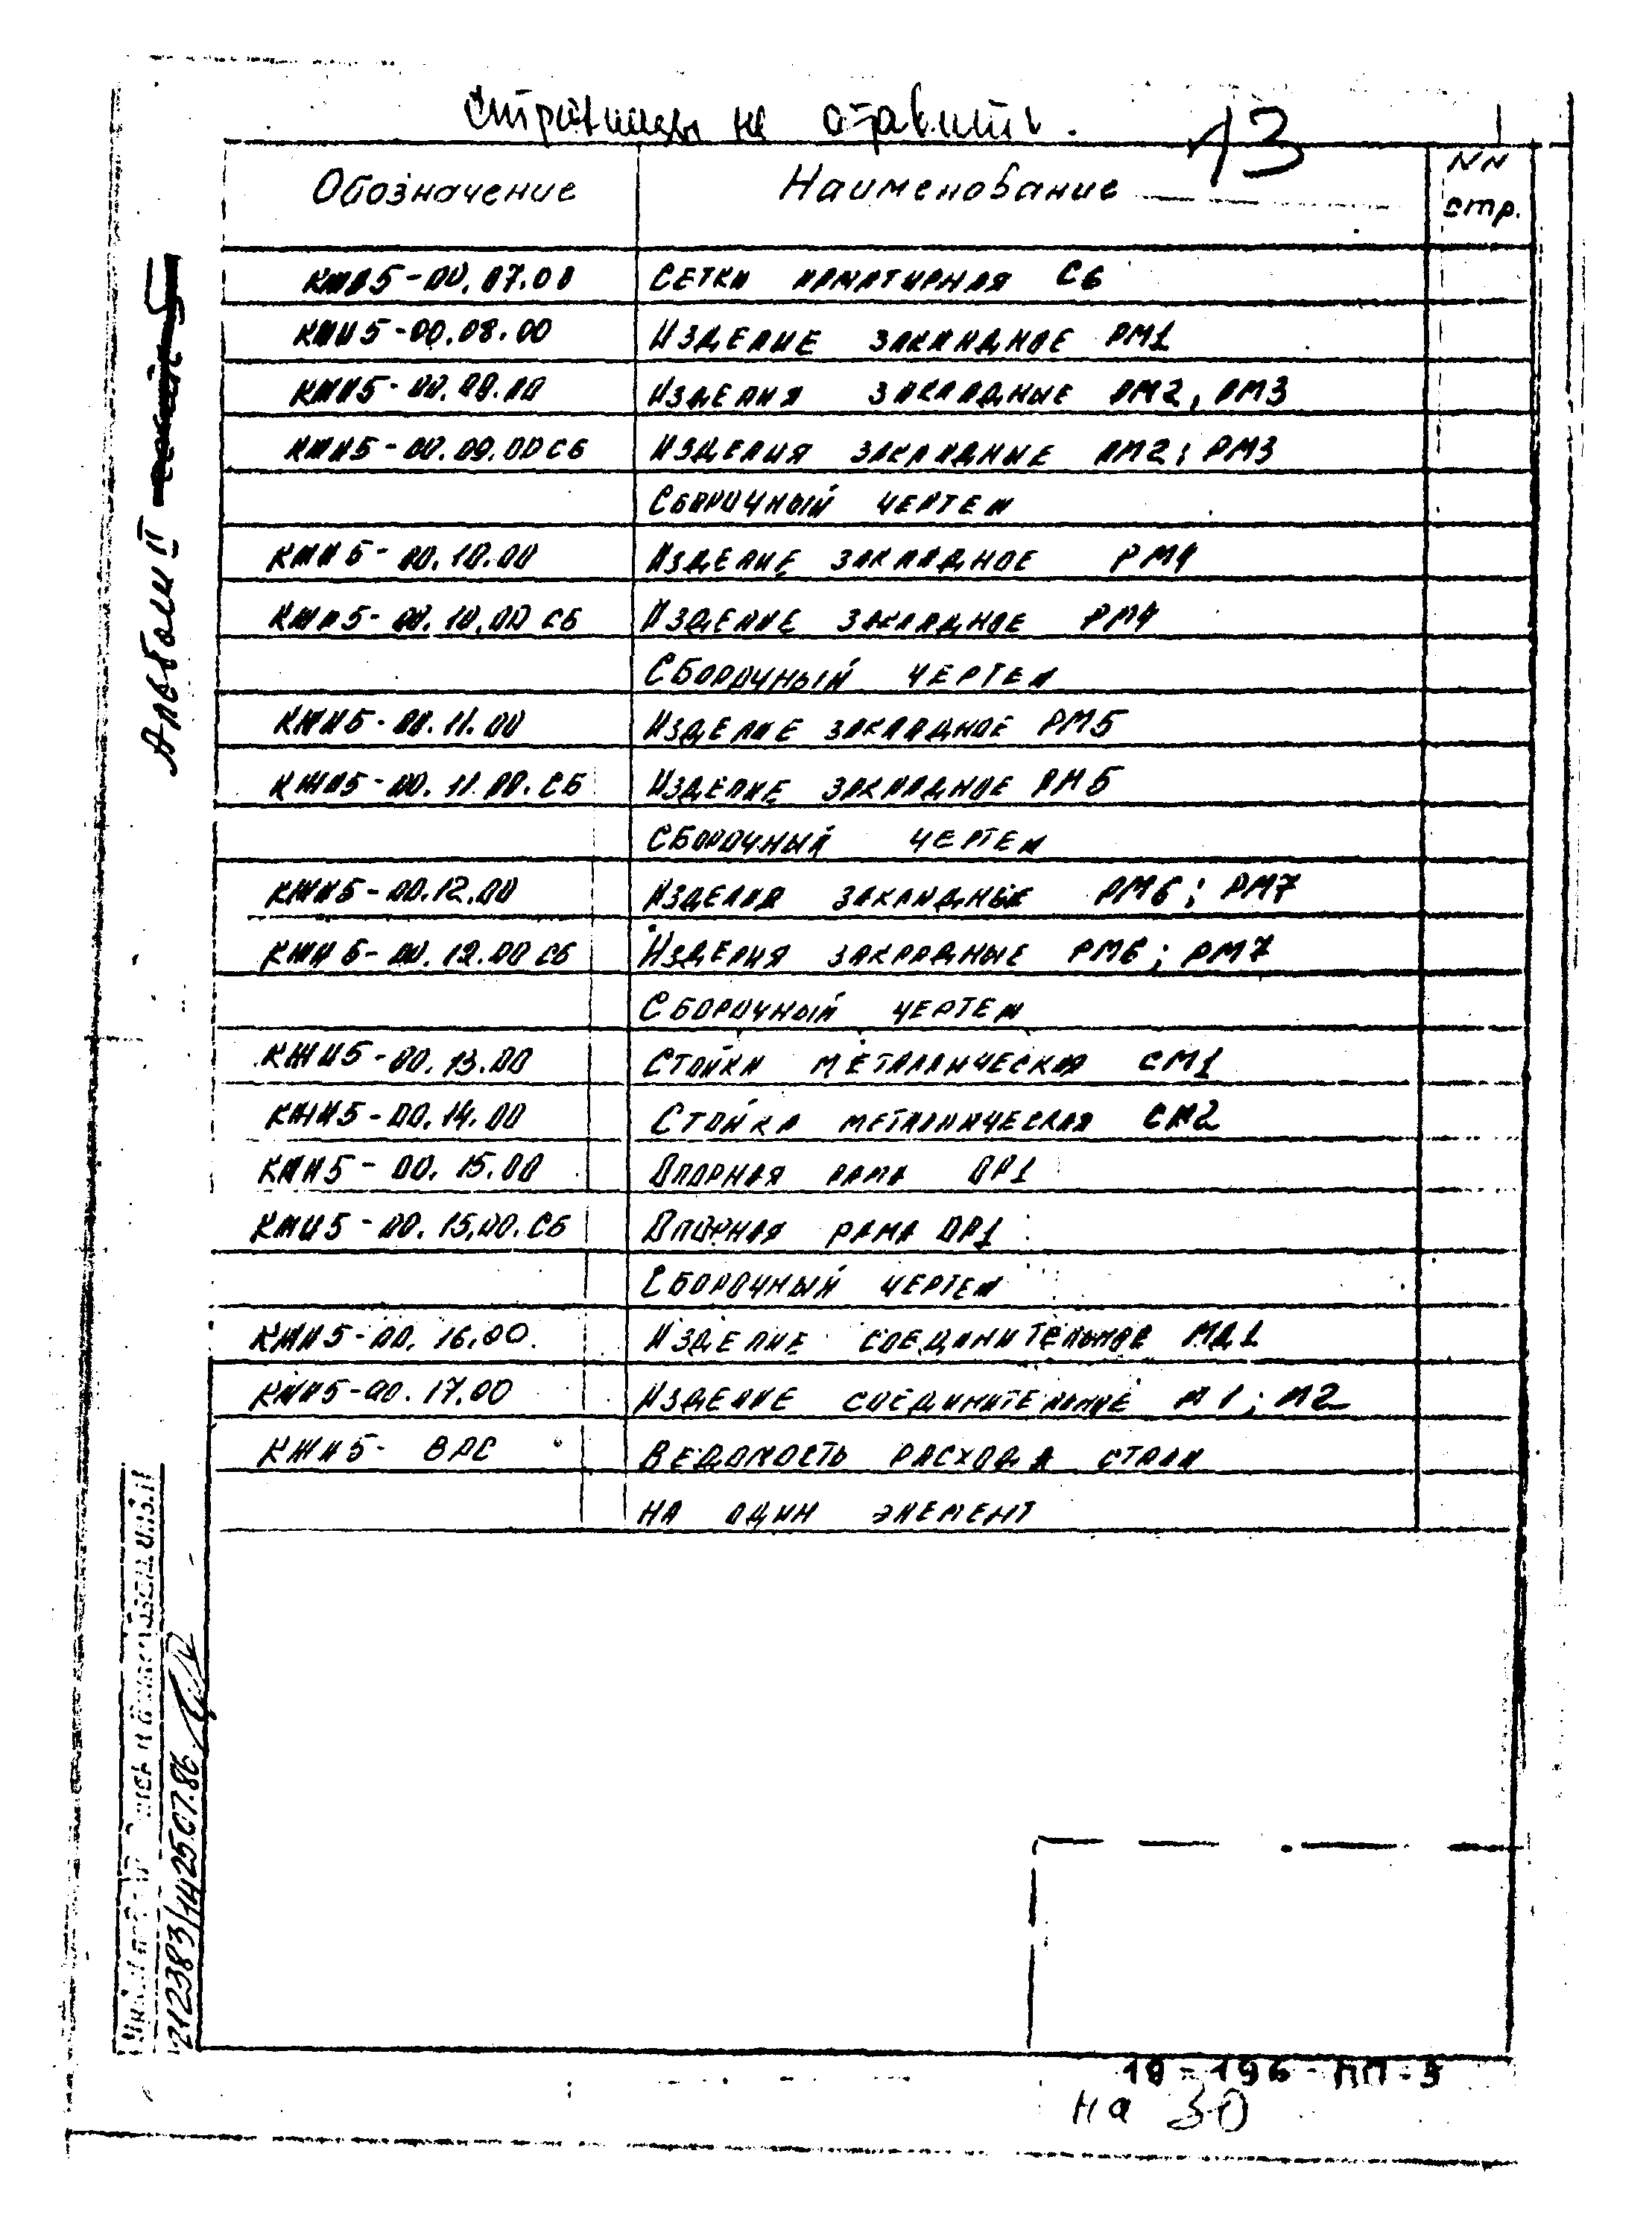 не
13
Обозначение Наименование NN
стр.
КЖИ5-00.07.00 Сетка арматурная С6
КЖИ5-00.08.00 Изделие закладное РМ1
КЖИ5-00.09.00 Изделия закладные РМ2, РМ3
КЖИ5-00.09.00 СБ Изделия закладные РМ2; РМ3
Сборочный чертеж
КЖИ5-00.10.00 Изделие закладное РМ4
КЖИ5-00.10.00 СБ Изделие закладное РМ4
Сборочный чертеж
КЖИ5-00.11.00 Изделие закладное РМ5
КЖИ5-00.11.00.СБ Изделие закладное РМ5
Сборочный чертеж
КЖИ5-00.12.00 Изделия закладные РМ6; РМ7
КЖИ5-00.12.00 СБ Изделия закладные РМ6; РМ7
Сборочный чертеж
КЖИ5-00.13.00 Стойка металлическая СМ1
КЖИ5-00.14.00 Стойка металлическая СМ2
КЖИ5-00.15.00 Опорная рама ОР1
КЖИ5-00.15.00.СБ Опорная рама ОР1
Сборочный чертеж
КЖИ5-00.16.00. Изделие соединительное МД1
КЖИ5-00.17.00 Изделие соединительное М1; М2
КЖИ5- ВРС Ведомость расхода стали
на один элемент
Альбом II
212383/14 25.07.86
на 30